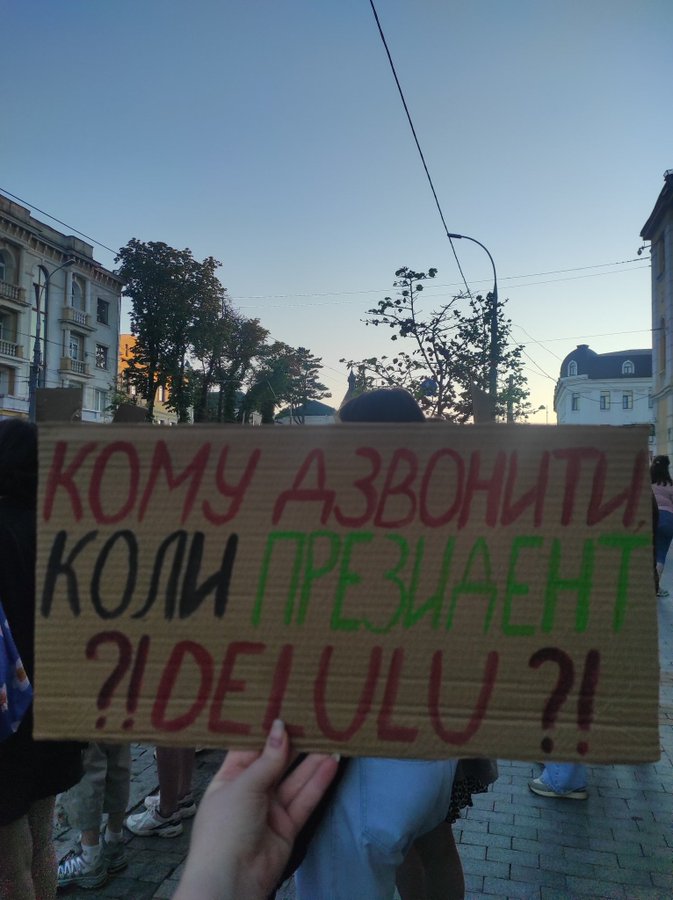 КОМУ ДЗВОНИТИ,
КОЛИ ПРЕЗИДЕНТ
?! DELULU ?!